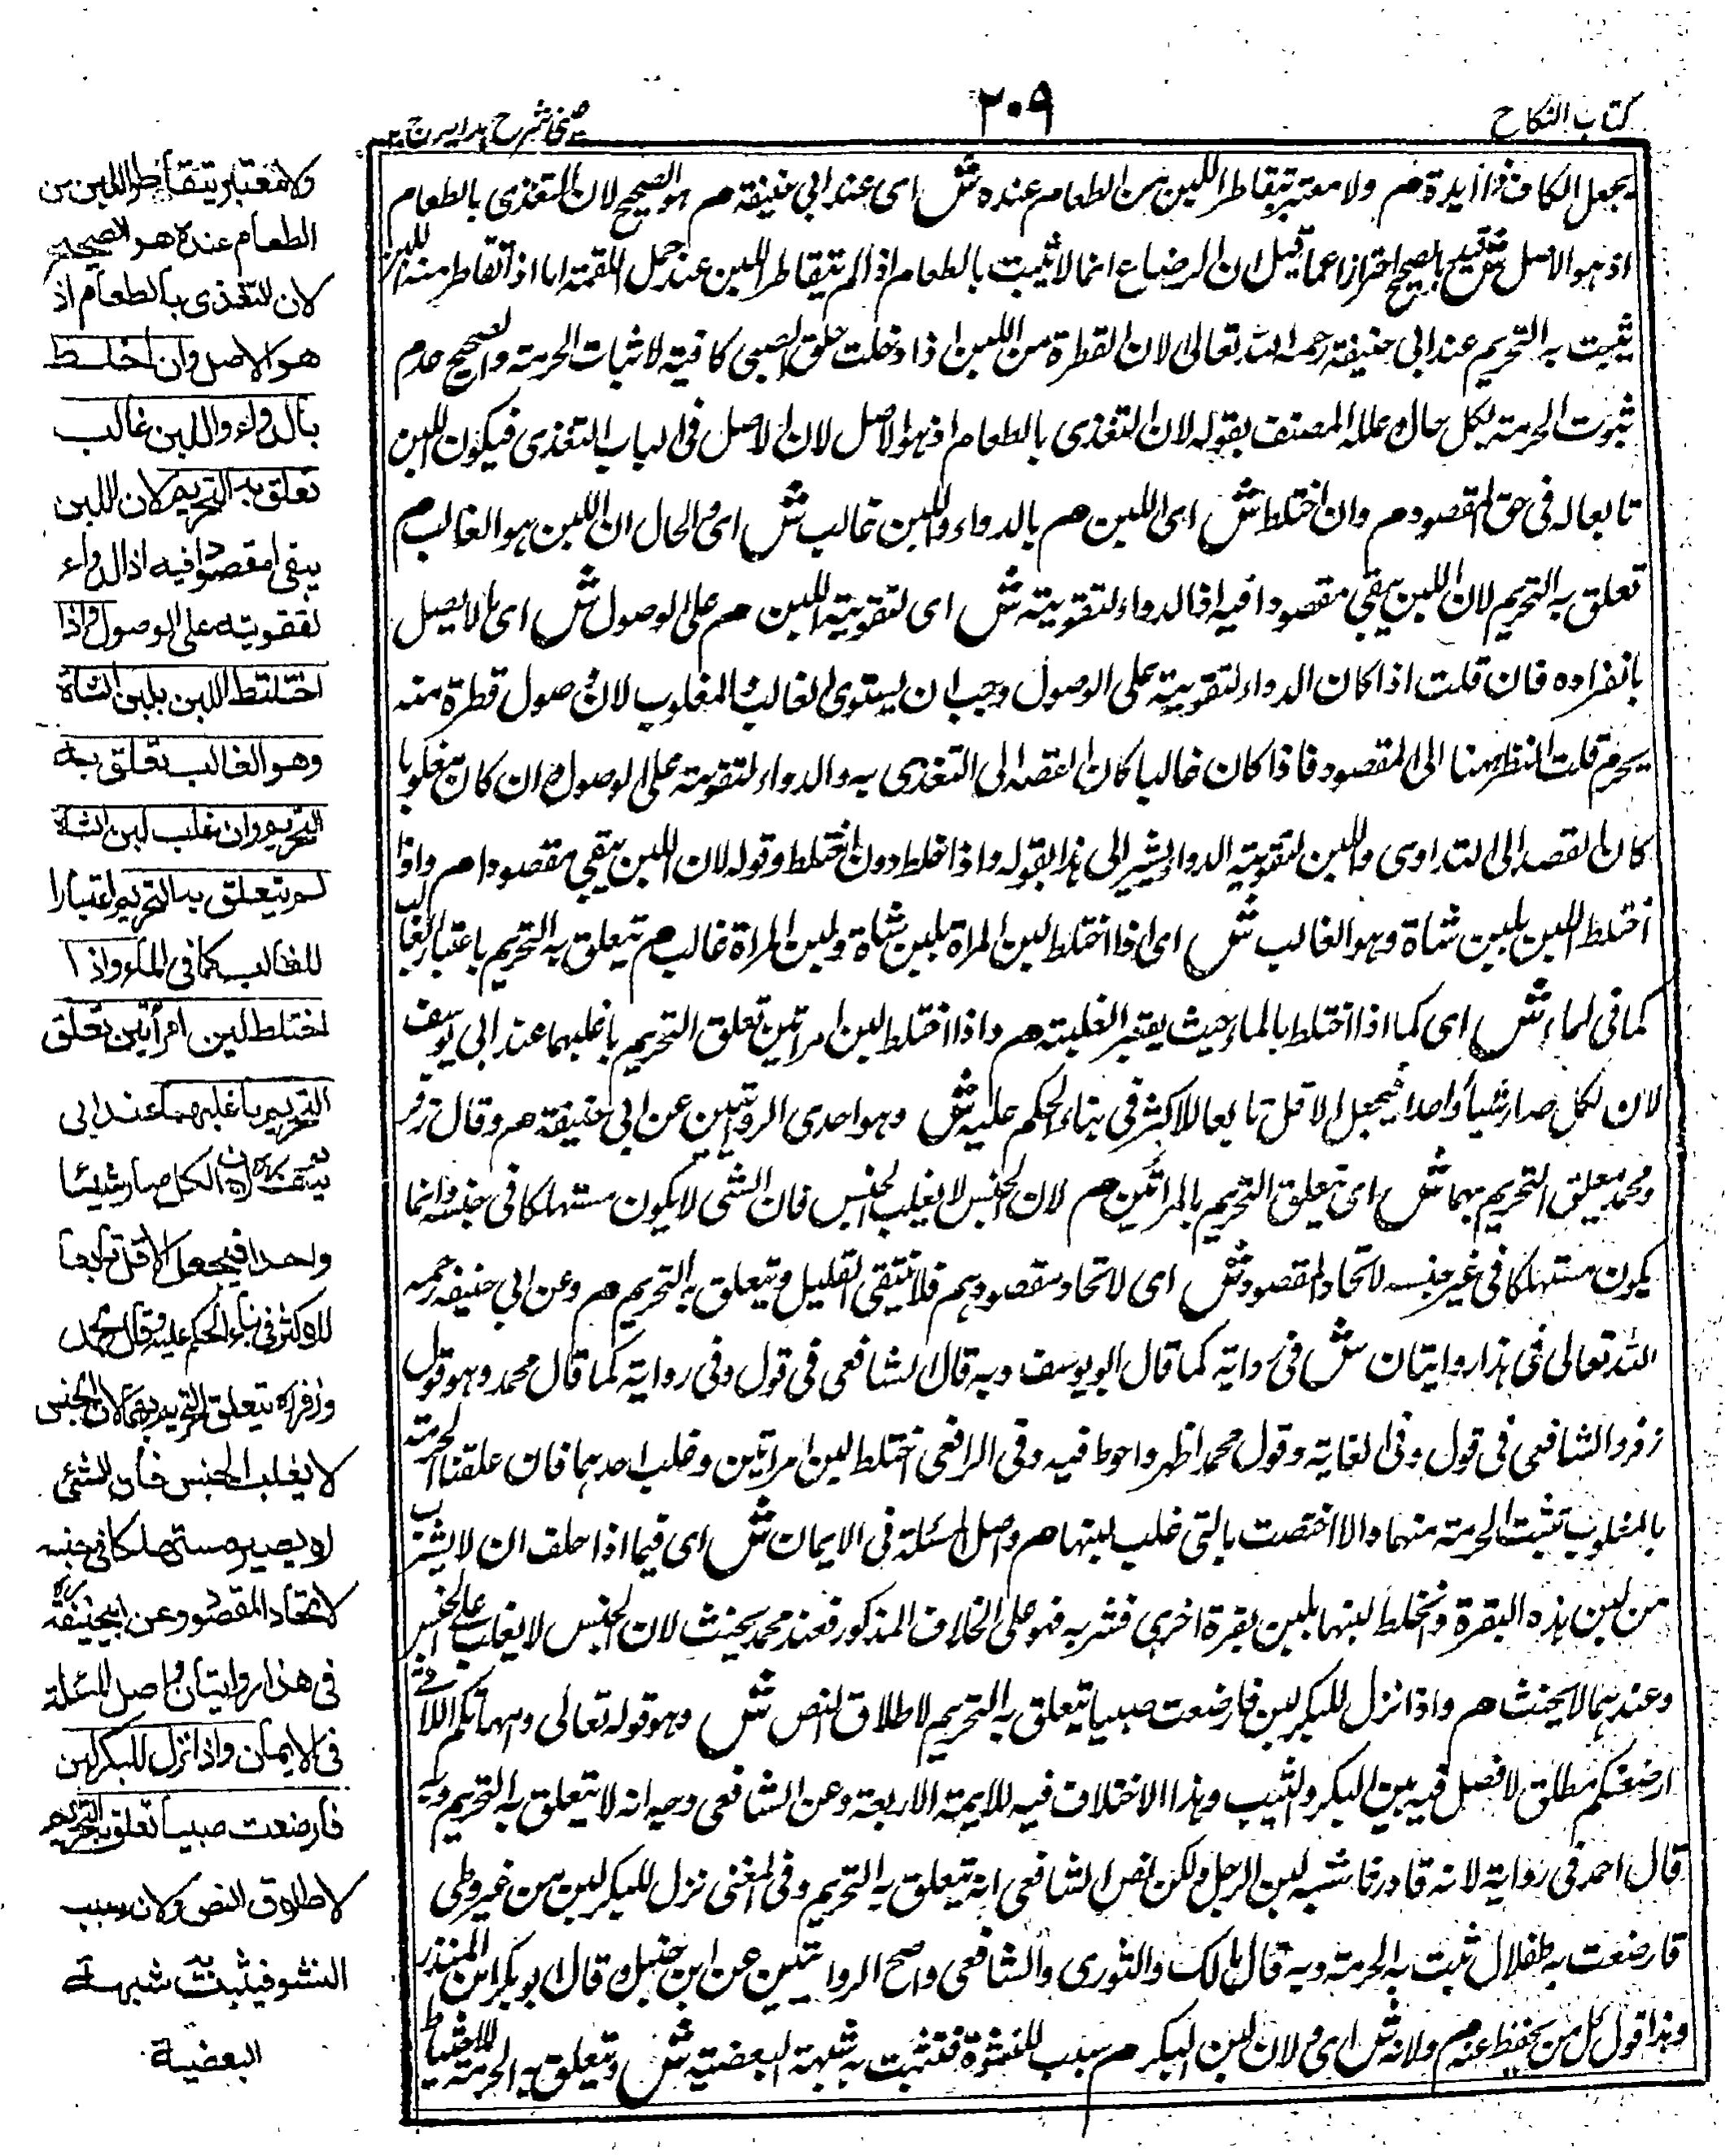 كتاب النكاح
٢٠٩
عينى شرح هدايه ج ٢
يجعل الكاف زائدة هم ولا معتبر بتقاطر اللبن من الطعام عنده ش اى عند ابى حنيفة هم هو الصحيح لان التغذى بالطعام
اذ هو الاصل ش قيد بالصحيح احترازا عما قيل ان الرضاع انما لا يثبت بالطعام اذا لم يتقاطر اللبن عند حمل اللقمة اما اذا تقاطر منه اللبن
يثبت به التحريم عند ابى حنيفة رحمه الله تعالى لان القطرة من اللبن اذا دخلت حلق الصبى كافية لاثبات الحرمة والصحيح عدم
ثبوت الحرمة بكل حال علله المصنف بقوله لان التغذى بالطعام اذ هو الاصل لان الاصل فى الباب التغذى فيكون اللبن
تابعا له فى حق المقصود هم وان اختلط ش اى اللبن هم بالدواء واللبن غالب ش اى والحال ان اللبن هو الغالب هم
تعلق به التحريم لان اللبن يبقى مقصودا فيه اذ الدواء لتقويته ش اى لتقوية اللبن هم على الوصول ش اى لما لا يصل
بانفراده فان قلت اذا كان الدواء لتقويته على الوصول وجب ان يستوى الغالب والمغلوب لان وصول قطرة منه
يحرم قلت النظر ههنا الى المقصود فاذا كان غالبا كان القصد الى التغذى به والدواء لتقويته على الوصول وان كان مغلوبا
كان القصد الى التداوى واللبن لتقوية الدواء يشير الى هذا بقوله واذا خلط دون اختلط وقوله لان اللبن يبقى مقصودا هم واذا
اختلط اللبن بلبن شاة وهو الغالب ش اى اذا اختلط لبن المراة بلبن شاة ولبن المراة غالب هم تعلق به التحريم باعتبار الغالب
كما فى الماء ش اى كما اذا اختلط بالماء حيث يعتبر الغلبة هم واذا اختلط لبن امراتين تعلق التحريم باغلبهما عند ابى يوسف
لان الكل صار شيأ واحدا فيجعل الاقل تابعا للاكثر فى بناء الحكم عليه ش وهو احدى الروايتين عن ابى حنيفة هم وقال زفر
ومحمد يتعلق التحريم بهما ش اى يتعلق التحريم بالمرأتين هم لان الجنس لا يغلب الجنس فان الشى لا يكون مستهلكا فى جنسه وانما
يكون مستهلكا فى غير جنسه لاتحاد المقصود ش اى لاتحاد مقصودهم فلا ينتفى القليل ويتعلق به التحريم هم وعن ابى حنيفة رحمه
الله تعالى فى هذا روايتان ش فى رواية كما قال ابو يوسف وبه قال الشافعى فى قول وفى رواية كما قال محمد وهو قول
زفر والشافعى فى قول وفى الغاية وقول محمد اظهر واحوط فيه وفى الرافعى اختلط لبن امراتين وغلب احدهما فان علقنا الحرمة
بالمغلوب تثبت الحرمة منهما والا اختصت بالتى غلب لبنها هم واصل المسئلة فى الايمان ش اى فيما اذا حلف ان لا يشرب
من لبن هذه البقرة وتخلط لبنها بلبن بقرة اخرى فشربه فهو على الخلاف المذكور فعند محمد يحنث لان الجنس لا يغلب على الجنس
وعندهما لا يحنث هم واذا نزل للبكر لبن فارضعت صبيا يتعلق به التحريم لاطلاق النص ش وهو قوله تعالى وامهاتكم اللاتى
ارضعنكم مطلق لا فصل فيه بين البكر والثيب وهذا الا خلاف فيه للايمة الاربعة وعن الشافعى وجه انه لا يتعلق به التحريم وبه
قال احمد فى رواية لانه نادر فاشبه لبن الرجل ولكن نص الشافعى انه يتعلق به التحريم وفى المغنى نزل للبكر لبن من غير وطى
فارضعت به طفلا ثبت به الحرمة وبه قال مالك والثورى والشافعى واصح الروايتين عن ابن حنبل وقال ابو بكر ابن المنذر
وهذا قول كل من يحفظ عنه هم ولانه ش اى ولان لبن البكر هم سبب للنشوة فتثبت به شبهة البعضية ش وتتعلق به الحرمة للاحتياط
ولا معتبر بتقاطر اللبن من
الطعام عنده هو الصحيح
لان التغذى بالطعام اذ
هو الاصل وان اختلط
بالدواء واللبن غالب
تعلق به التحريم لان اللبن
يبقى مقصودا فيه اذ الدواء
لتقويته على الوصول واذا
اختلط اللبن بلبن الشاة
وهو الغالب تعلق به
التحريم وان غلب لبن الشاة
لم يتعلق به التحريم اعتبارا
للغالب كما فى الماء واذا
اختلط لبن امرأتين تعلق
التحريم باغلبهما عند ابى
يوسف لان الكل صار شيئا
واحدا فيجعل الاقل تابعا
للاكثر فى بناء الحكم عليه وقال محمد
وزفر يتعلق التحريم بهما لان الجنس
لا يغلب الجنس فان الشئى
لا يصير مستهلكا فى جنسه
لاتحاد المقصود وعن ابيحنيفة
فى هذا روايتان واصل المسئلة
فى الايمان واذا نزل للبكر لبن
فارضعت صبيا تعلق به التحريم
لاطلاق النص ولانه سبب
النشو فيثبت به شبهة
البعضية